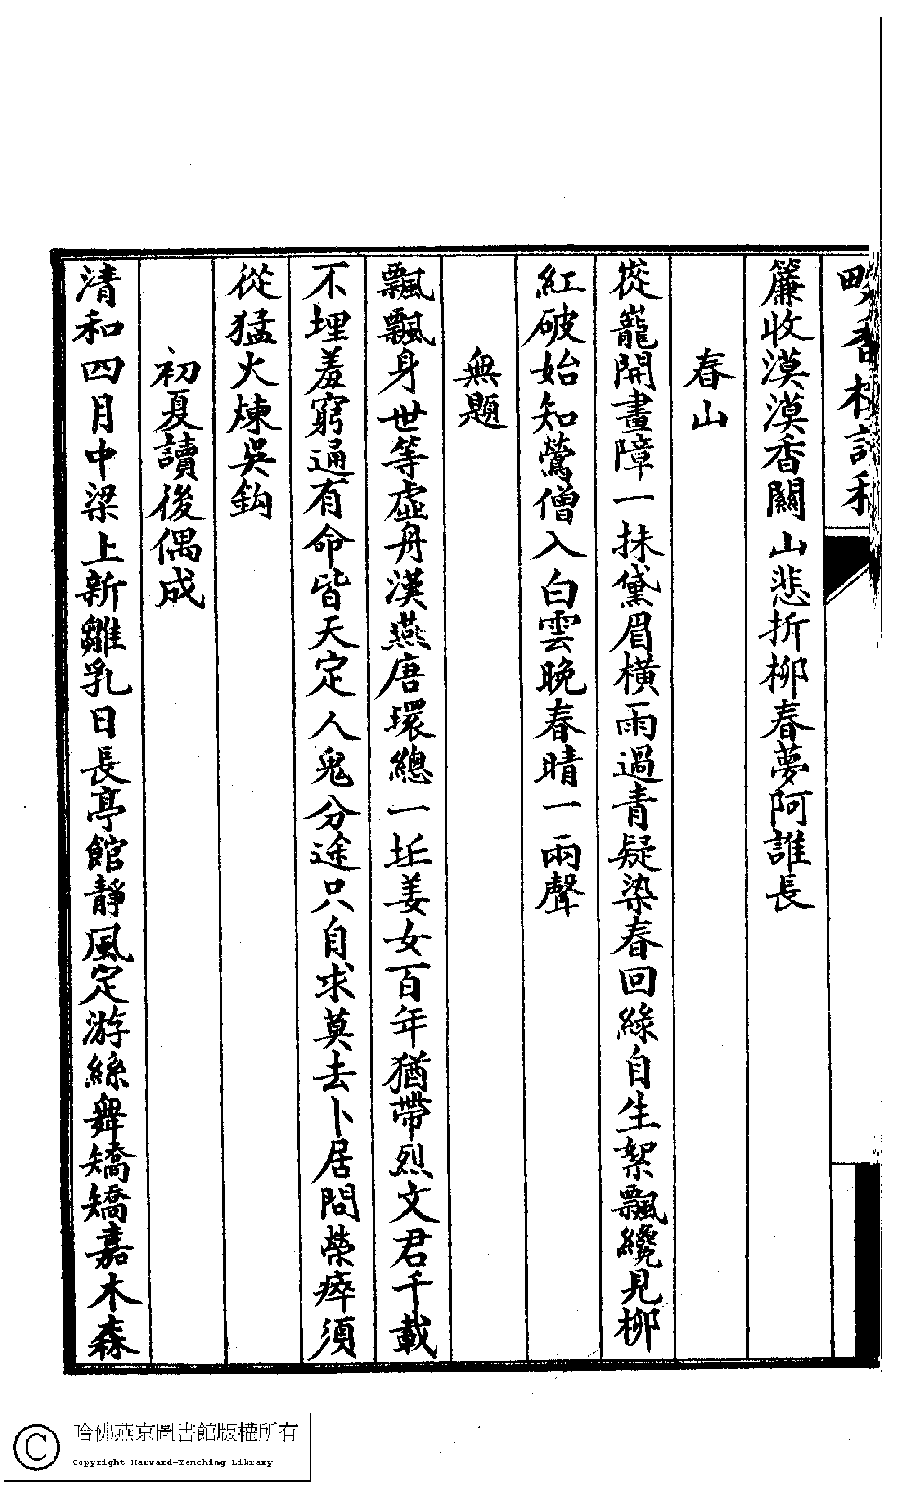 畹香樓詩稿
簾收漠漠香關山悲折柳春夢阿誰長
春山
嵸巃開畫障一抹黛眉橫雨過青疑染春回綠自生絮飄纔見柳
紅破始知鶯僧入白雲晚春晴一兩聲
無題
飄飄身世等虛舟漢燕唐環總一坵姜女百年猶帶烈文君千載
不埋羞窮通有命皆天定人鬼分途只自求莫去卜居問榮瘁須
從猛火煉吳鈎
初夏讀後偶成
清和四月中梁上新雛乳日長亭館靜風定游絲舞矯矯嘉木森
哈佛燕京圖書館版權所有
Copyright Harvard-Yenching Library